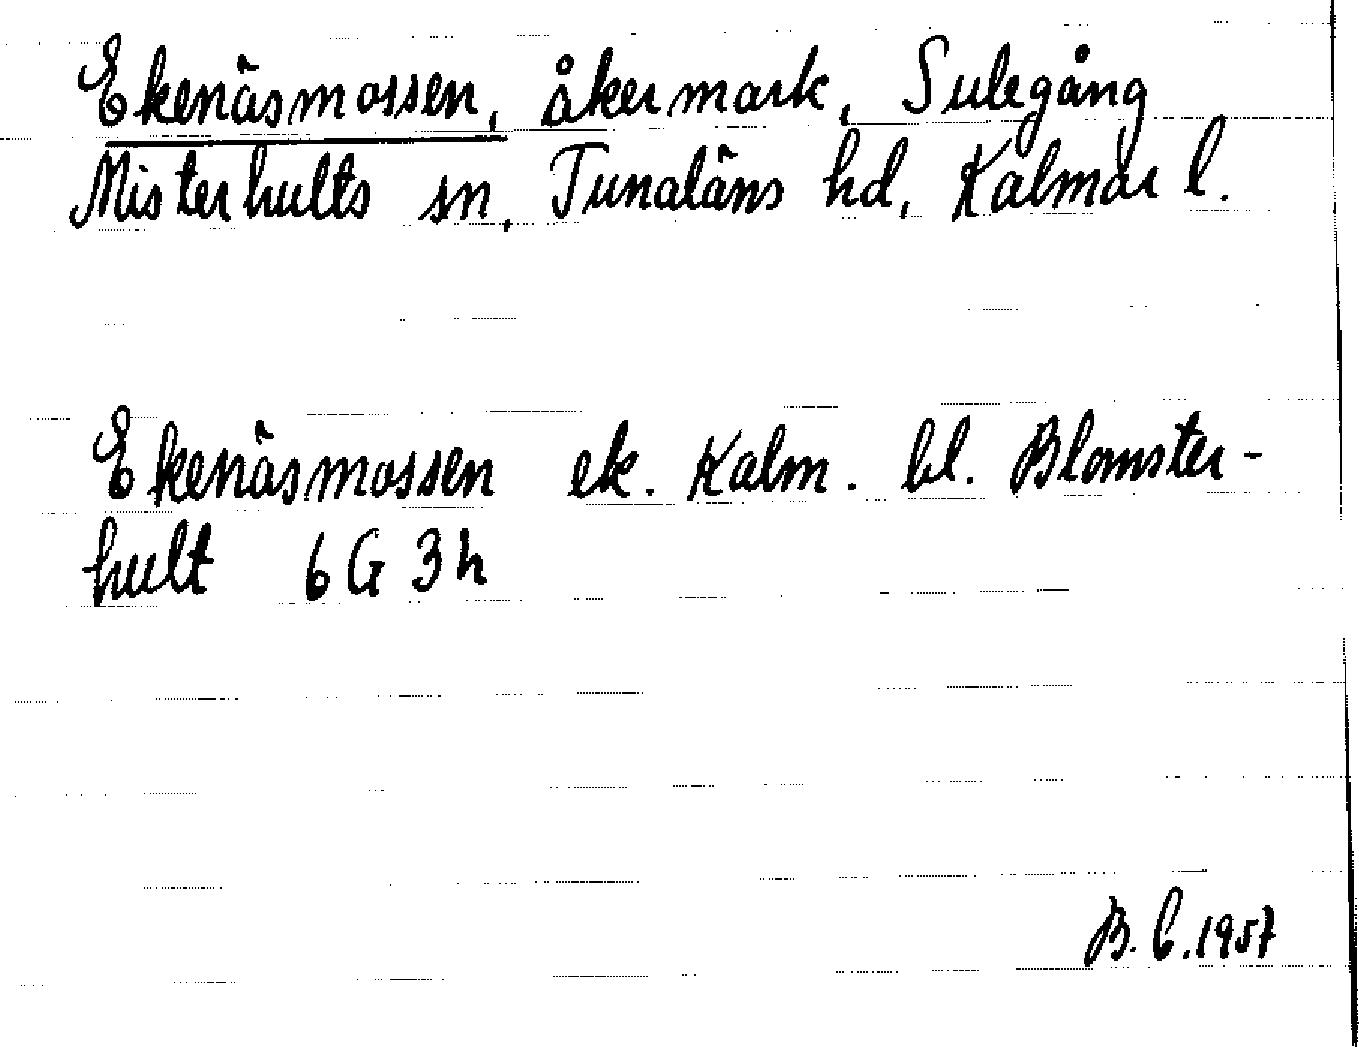 Ekenäsmossen, åkermark, Sulegång
Misterhults sn, Tunaläns hd, Kalmar l.
Ekenäsmossen ek. Kalm. bl. Blomster-
hult 6G 3h
B.C. 1957